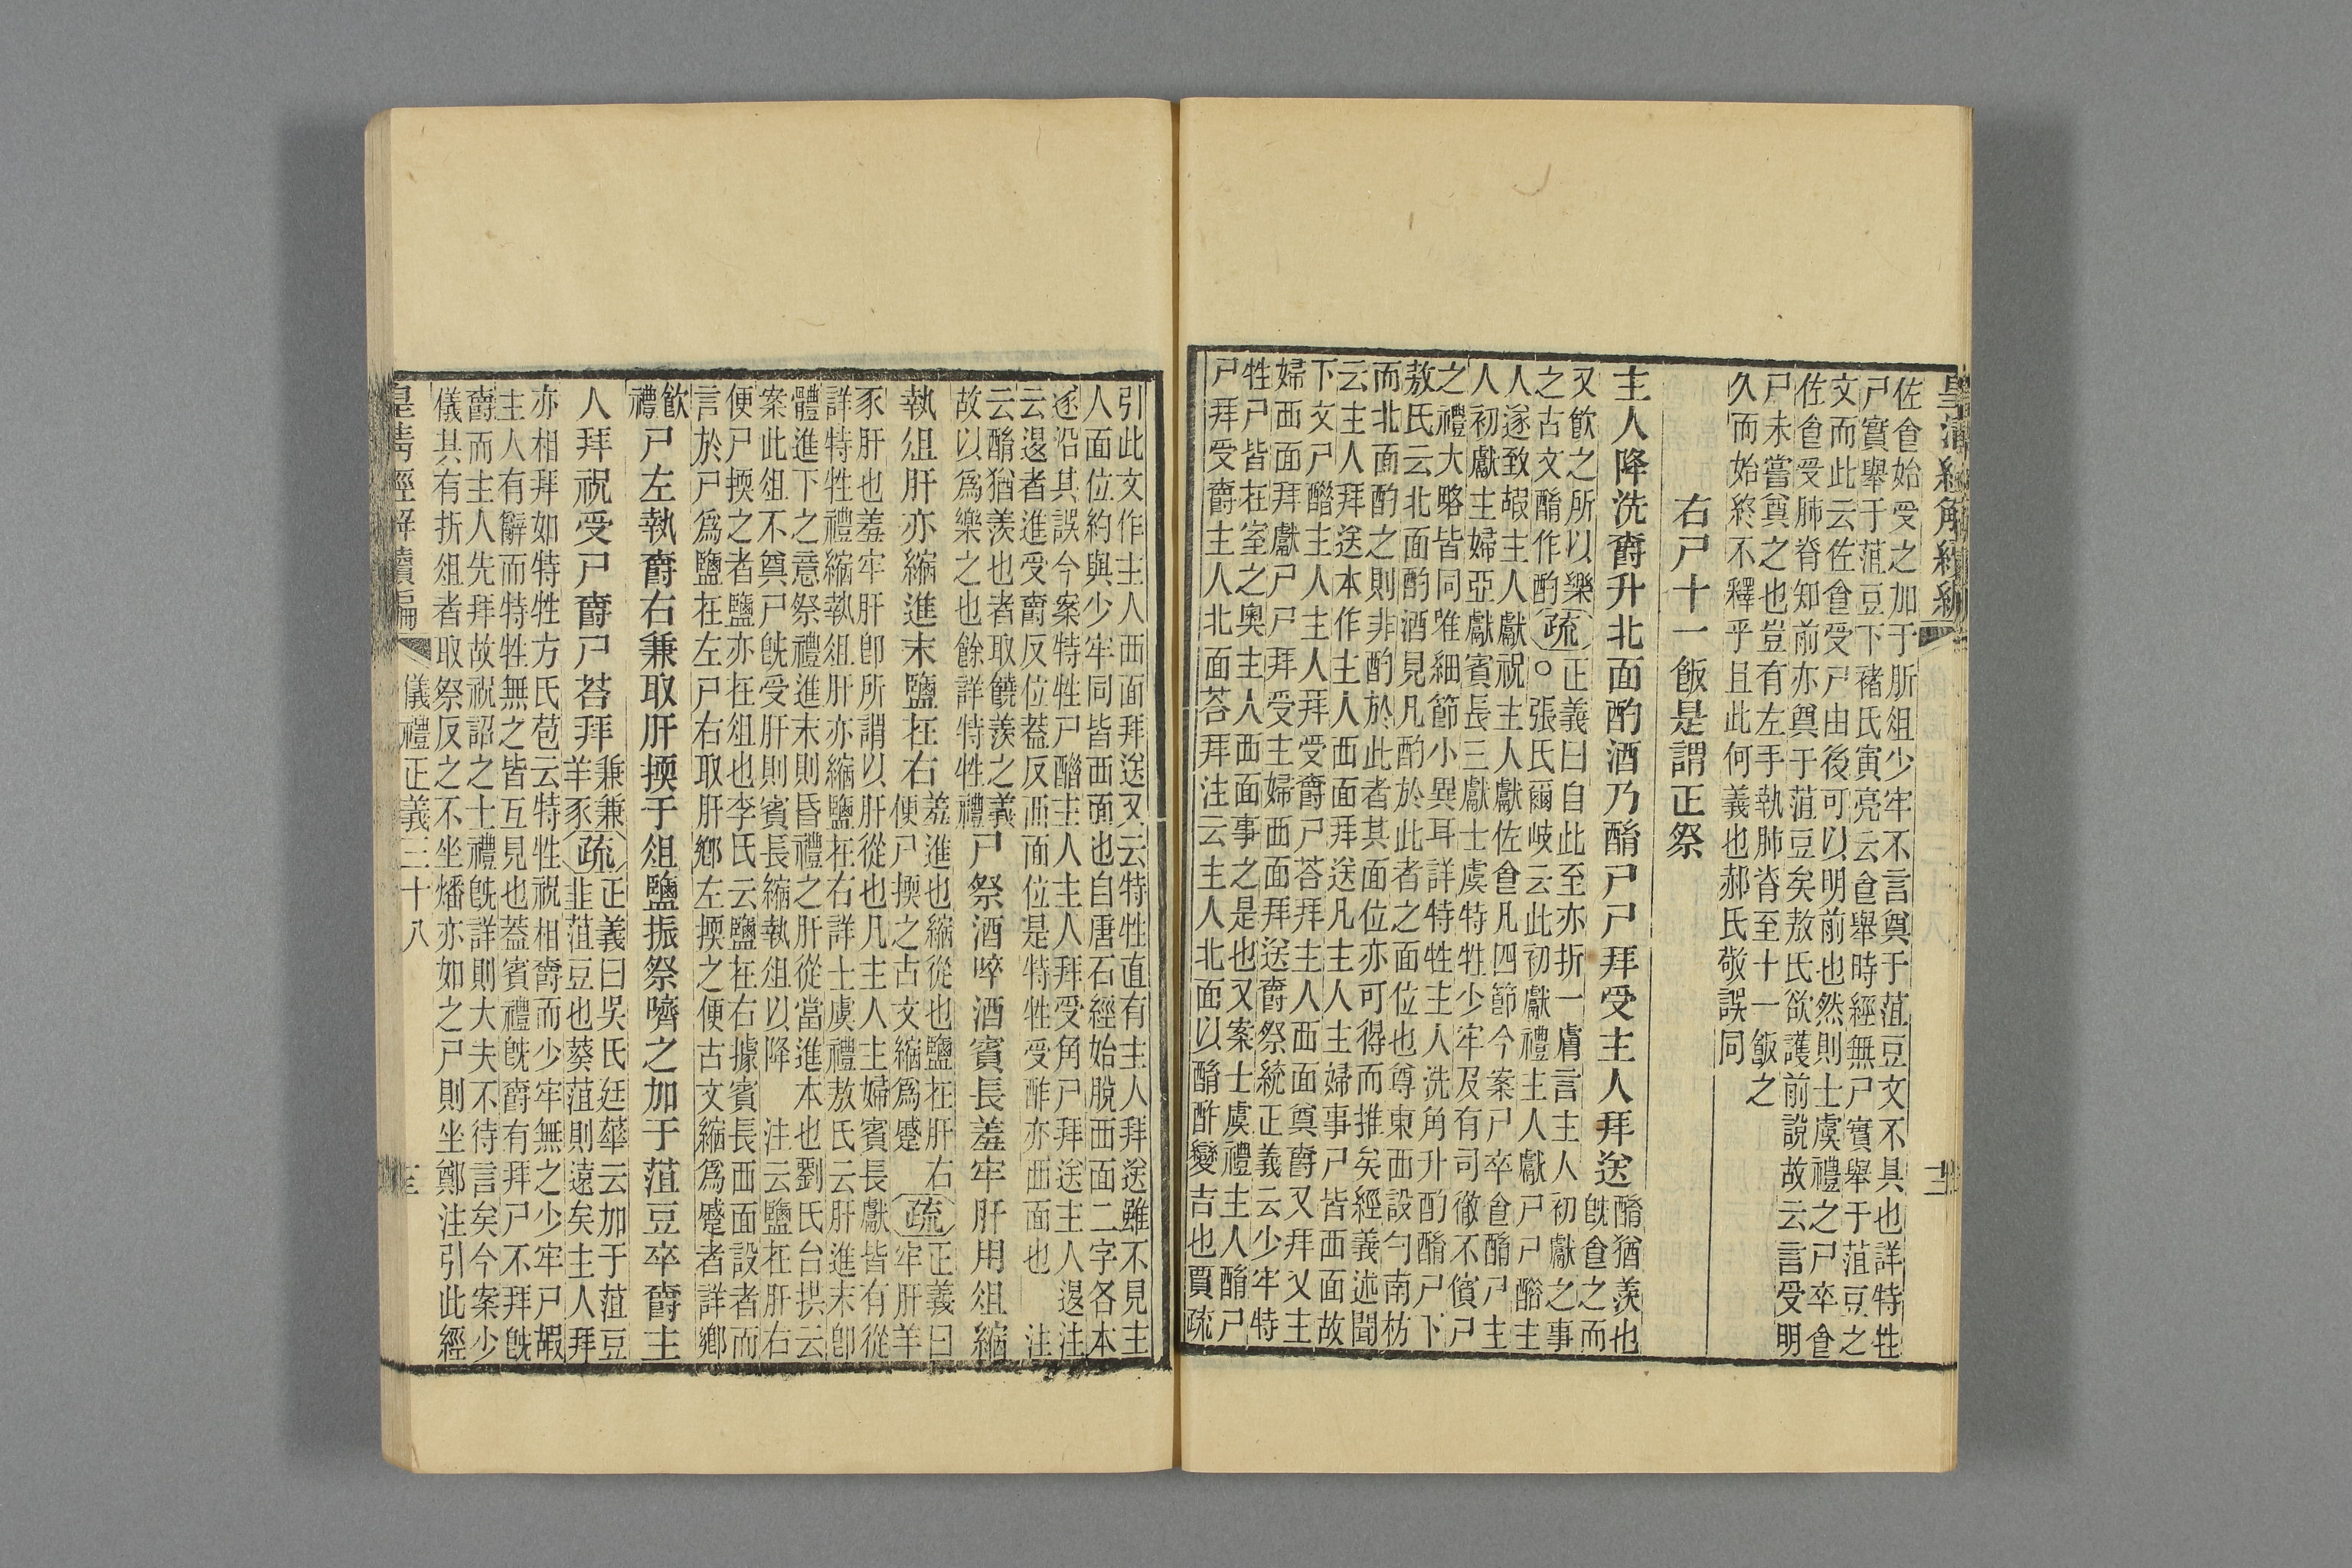 皇清經解續編
佐食始受之加于肵俎少牢不言奠于菹豆文不具也詳特牲
尸實舉于菹豆下褚氏寅亮云食舉時經無尸實舉于菹豆之
文而此云佐食受尸由後可以明前也然則士虞禮之尸卒食
佐食受肺脊知前亦奠于菹豆矣敖氏欲護前說故云言受明
尸未嘗奠之也豈有左手執肺脊至十一飯之
久而始終不釋乎且此何義也郝氏敬誤同
右尸十一飯是謂正祭
主人降洗爵升北面酌酒乃酳尸尸拜受主人拜送
酳猶羨也
旣食之而
又飲之所以樂
之古文酳作酌
疏
正義曰自此至亦折一膚言主人初獻之事
○張氏爾岐云此初獻禮主人獻尸尸醋主
人遂致嘏主人獻祝主人獻佐食凡四節今案尸卒食酳尸主
人初獻主婦亞獻賓長三獻士虞特牲少牢及有司徹不儐尸
之禮大略皆同唯細節小異耳詳特牲主人洗角升酌酳尸下
敖氏云北面酌酒見凡酌於此者之面位也尊東西設勺南枋
而北面酌之則非酌於此者其面位亦可得而推矣經義述聞
云主人拜送本作主人西面拜送凡主人主婦事尸皆西面故
下文尸醋主人主人拜受爵尸荅拜主人西面奠爵又拜又主
婦西面拜獻尸尸拜受主婦西面拜送爵祭統正義云少牢特
牲尸皆在室之奧主人西面事之是也又案士虞禮主人酳尸
尸拜受爵主人北面荅拜注云主人北面以酳酢變吉也賈疏
引此文作主人西面拜送又云特牲直有主人拜送雖不見主
人面位約與少牢同皆西面也自唐石經始脫西面二字各本
逐沿其誤今案特牲尸醋主人主人拜受角尸拜送主人退注
云退者進受爵反位葢反西面位是特牲受酢亦西面也　注
云酳猶羨也者取饒羨之義
故以爲樂之也餘詳特牲禮
尸祭酒啐酒賓長羞牢肝用俎縮
執俎肝亦縮進末鹽在右
羞進也縮從也鹽在肝右
便尸㨎之古文縮爲蹙
疏
正義曰
牢肝羊
豕肝也羞牢肝卽所謂以肝從也凡主人主婦賓長獻皆有從
詳特牲禮縮執俎肝亦縮鹽在右詳士虞禮敖氏云肝進末卽
體進下之意祭禮進末則昏禮之肝從當進本也劉氏台拱云
案此俎不奠尸旣受肝則賓長縮執俎以降　注云鹽在肝右
便尸㨎之者鹽亦在俎也李氏云鹽在右據賓長西面設者而
言於尸爲鹽在左尸右取肝鄉左㨎之便古文縮爲蹙者詳鄉
飲
禮
尸左執爵右兼取肝㨎于俎鹽振祭嚌之加于菹豆卒爵主
人拜祝受尸爵尸荅拜
兼兼
羊豕
疏
正義曰吳氏廷華云加于菹豆
韭菹豆也葵菹則遠矣主人拜
亦相拜如特牲方氏苞云特牲祝相爵而少牢無之少牢尸嘏
主人有辭而特牲無之皆互見也葢賓禮旣爵有拜尸不拜旣
爵而主人先拜故祝詔之士禮旣詳則大夫不待言矣今案少
儀其有折俎者取祭反之不坐燔亦如之尸則坐鄭注引此經
皇淸經解續編
儀禮正義三十八